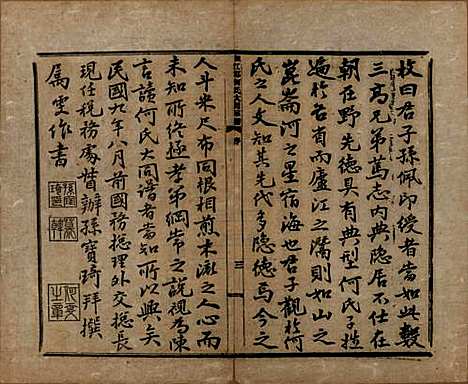 枚曰君子孫佩印綬者當如此數
三高兄弟篤志内典隱居不仕在
朝在野先德具有典型何氏子姓
遍於各省而廬江之瀾則如山之
崑崙河之星宿海也君子觀於何
氏之人文知其先代多隱德焉今之
人斗米尺布同根相煎木漸之人心而
未知所终極孝弟綱常之說視為陳
言讀何氏大同譜者當知所以興矣
民國九年八月前國務摠理外交摠長
現任税務處督辦孫寶琦拜撰
屬雯作書